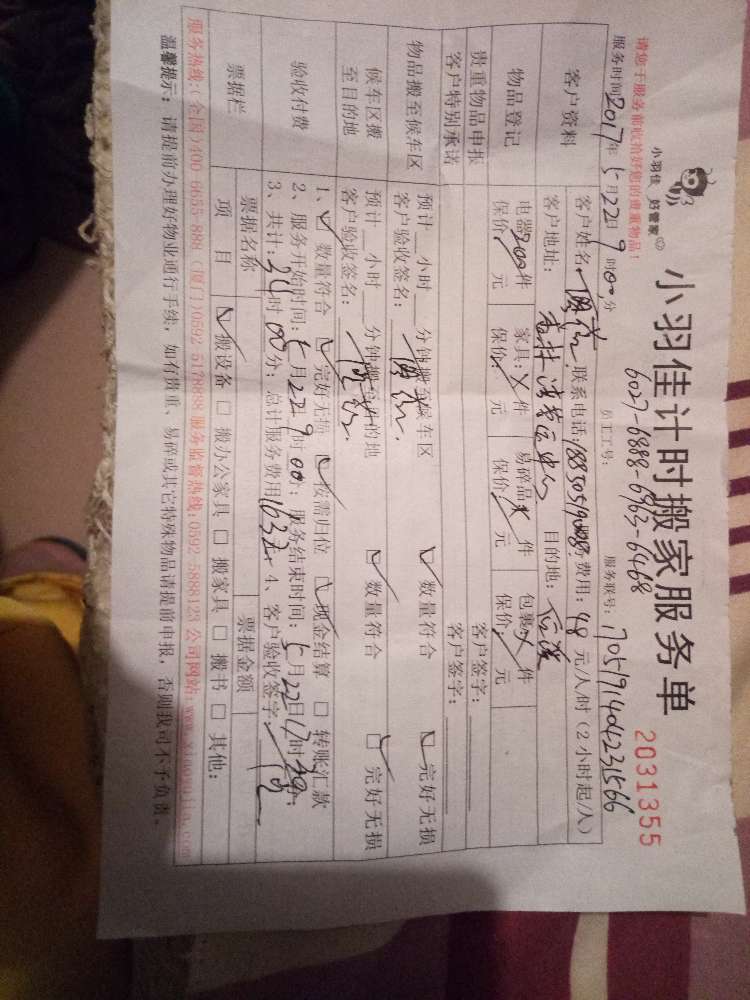 小羽佳 好管家
小羽佳计时搬家服务单
2031355
请您于服务前收拾好您的贵重物品!
6027-6888-6963-6468
服务时间:2017年5月22日9时00分 员工工号: 服务联号:
客户资料 客户姓名: 联系电话: 服务费用:48元/人/时(2小时起/人)
客户地址: 目的地:
物品登记 电器 件 家具: 件 易碎品 件 包裹 件
保价: 元 保价: 元 保价: 元 保价: 元
贵重物品申报 客户签字:
客户特别承诺 客户签字:
物品搬至候车区 预计 小时 分钟搬至候车区 数量符合 完好无损
客户验收签名:
候车区搬至目的地 预计 小时 分钟搬至目的地 数量符合 完好无损
客户验收签名:
验收付费 1、数量符合 完好无损 按需归位 现金结算 转账汇款
2、服务开始时间:5月22日9时00分;服务结束时间:5月22日17时 分;
3、共计: 时00分;总计服务费用1632元 4、客户验收签字:
票据栏 票据名称 票据金额
项目 搬设备 搬办公家具 搬家具 搬书 其他:
服务热线:(全国)400-6655-888 (厦门)0592-5178888 服务监督热线:0592-5888123 公司网站:www.xiaoyujia.com
温馨提示: 请提前办理好物业通行手续,如有贵重、易碎或其它特殊物品请提前申报,否则我司不予负责。